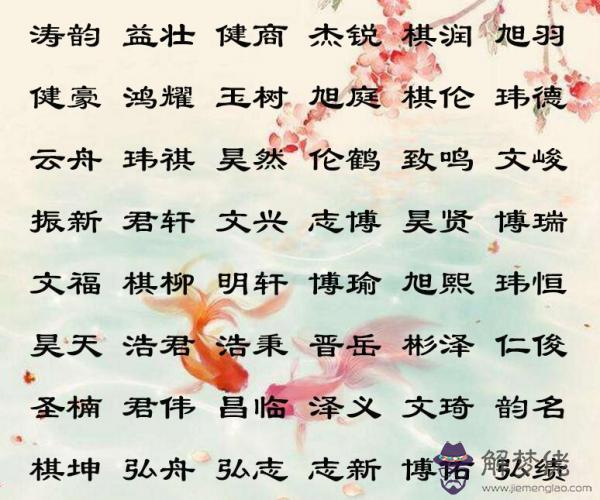 涛韵 益壮 健商 杰锐 棋润 旭羽
健豪 鸿耀 玉树 旭庭 棋伦 玮德
云舟 玮祺 昊然 伦鹤 致鸣 文峻
振新 君轩 文兴 志博 昊贤 博瑞
文福 棋柳 明轩 博瑜 旭熙 玮恒
昊天 浩君 浩秉 晋岳 彬泽 仁俊
圣楠 君伟 昌临 泽义 文琦 韵名
棋坤 弘舟 弘志 志新 博佑 弘绩
解梦佬
www.jiemenglao.com